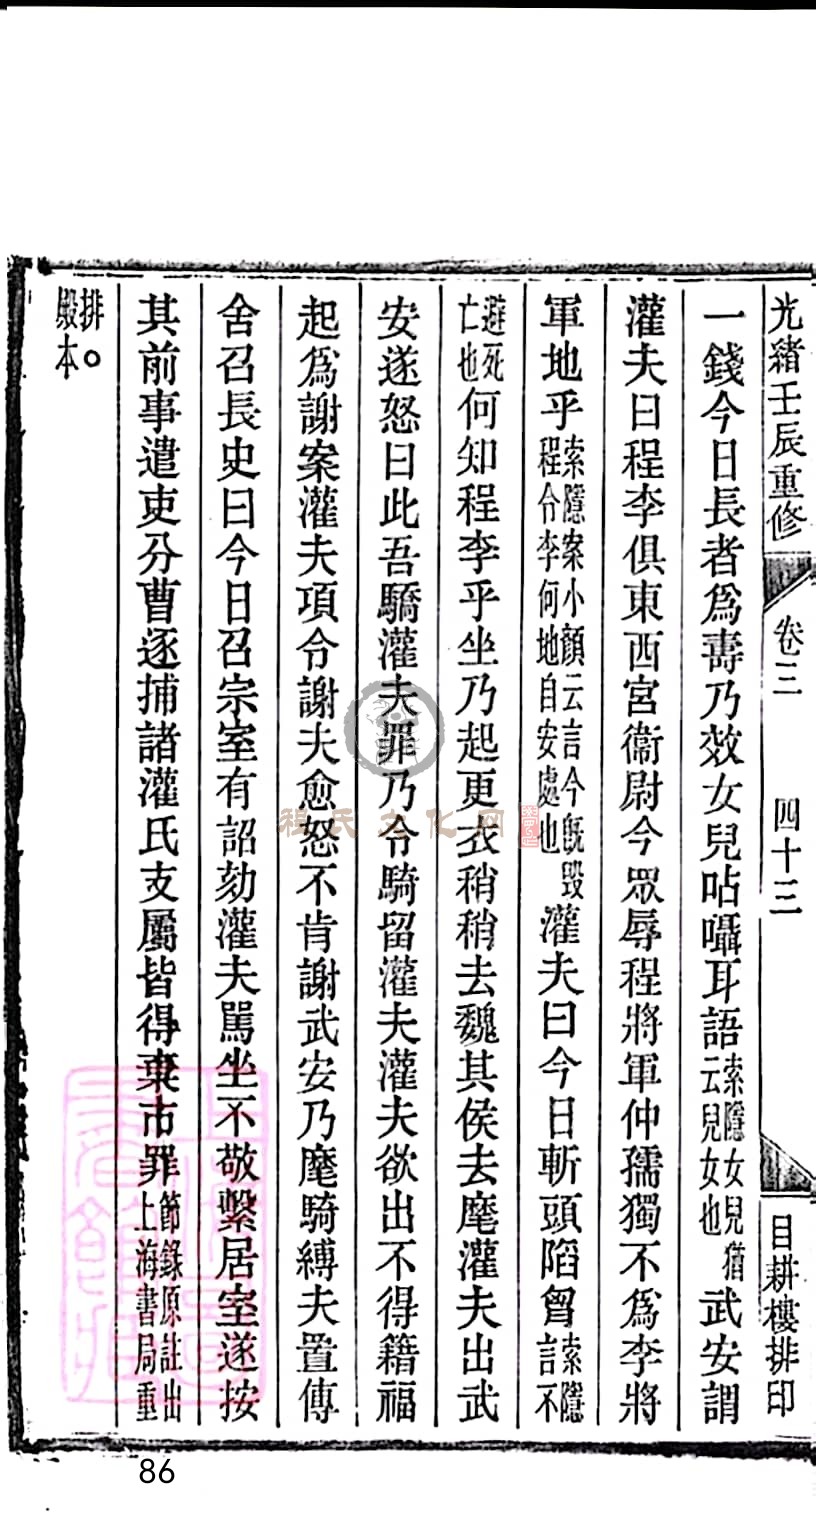 光緒壬辰重修 卷三 四十三 目耕樓排印
一錢今日長者爲壽乃效女兒呫囁耳語索隱女兒猶云兒女也武安謂
灌夫曰程李俱東西宮衞尉今眾辱程將軍仲孺獨不爲李將
軍地乎索隱案小顏云言今旣毀程令李何地自安處也灌夫曰今日斬頭陷胷索隱言不
避死亡也何知程李乎坐乃起更衣稍稍去魏其侯去麾灌夫出武
安遂怒曰此吾驕灌夫罪乃令騎留灌夫灌夫欲出不得籍福
起爲謝案灌夫項令謝夫愈怒不肯謝武安乃麾騎縛夫置傳
舍召長史曰今日召宗室有詔劾灌夫罵坐不敬繫居室遂按
其前事遣吏分曹逐捕諸灌氏支屬皆得棄市罪節錄原註出上海書局重
排殿本。
程氏文化网
86